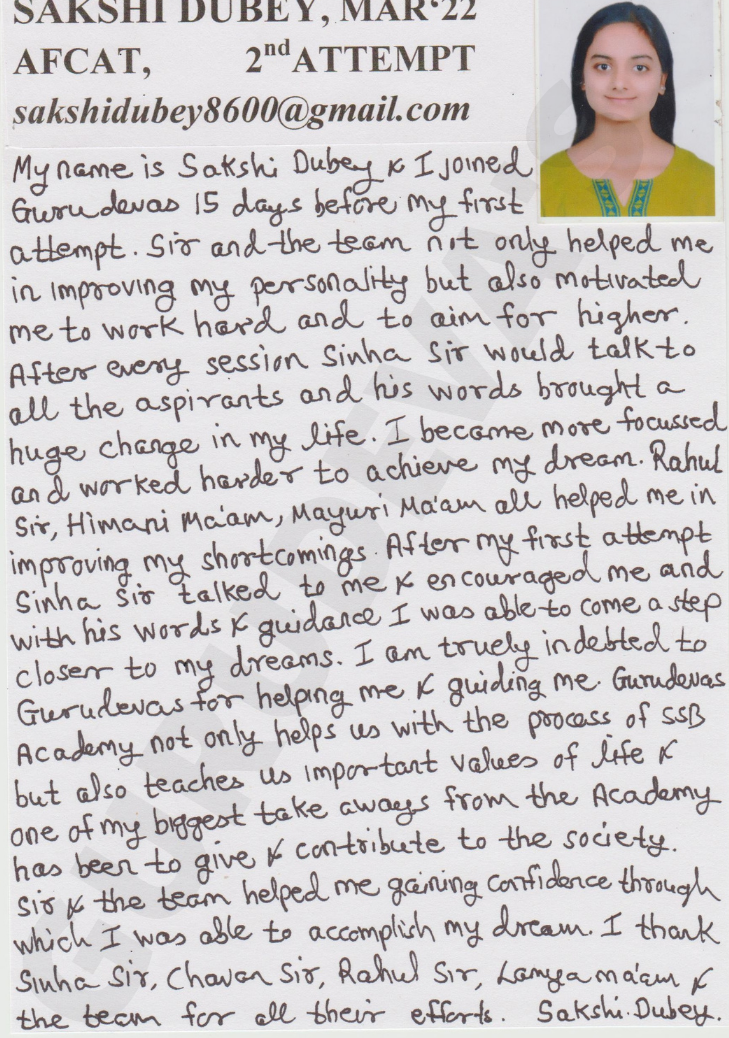 SAKSHI DUBEY, MAR‘22
AFCAT, 2nd ATTEMPT
sakshidubey8600@gmail.com
My name is Sakshi Dubey & I joined
Gurudevas 15 days before my first
attempt. Sir and the team not only helped me
in improving my personality but also motivated
me to work hard and to aim for higher.
After every session Sinha Sir would talk to
all the aspirants and his words brought a
huge change in my life. I became more focussed
and worked harder to achieve my dream. Rahul
Sir, Himani Ma'am, Mayuri Ma'am all helped me in
improving my shortcomings. After my first attempt
Sinha Sir talked to me & encouraged me and
with his words & guidance I was able to come a step
closer to my dreams. I am truely indebted to
Gurudevas for helping me & guiding me. Gurudevas
Academy not only helps us with the process of SSB
but also teaches us important values of life &
one of my biggest take aways from the Academy
has been to give & contribute to the society.
Sir & the team helped me gaining confidence through
which I was able to accomplish my dream. I thank
Sinha Sir, Chavan Sir, Rahul Sir, Lamya ma'am &
the team for all their efforts. Sakshi Dubey.
GURUDEVAS